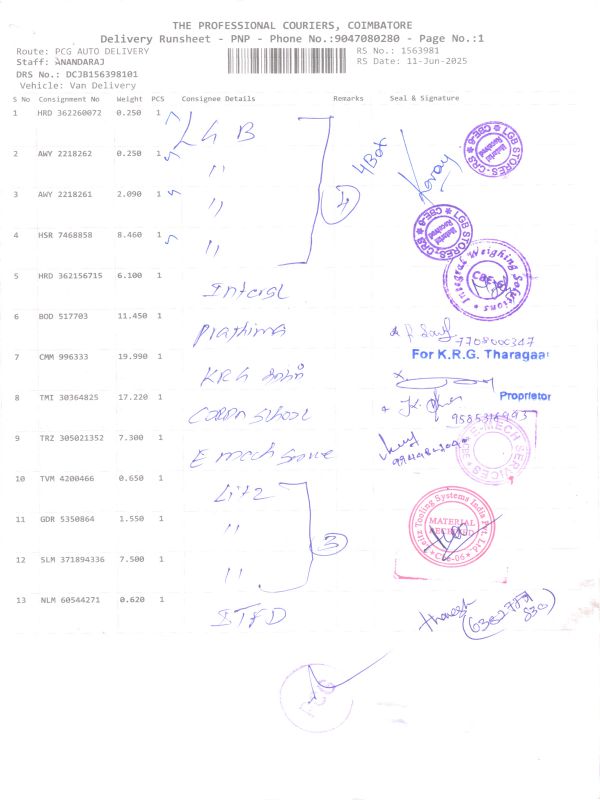 THE PROFESSIONAL COURIERS, COIMBATORE
Delivery Runsheet - PNP - Phone No.:9047080280 - Page No.:1
Route: PCG AUTO DELIVERY
RS No.: 1563981
Staff: ANANDARAJ
RS Date: 11-Jun-2025
DRS No.: DCJB156398101
Vehicle: Van Delivery
S No Consignment No Weight PCS Consignee Details Remarks Seal & Signature
1 HRD 362260072 0.250 1 LGB
2 AWY 2218262 0.250 1 " 4 Box
3 AWY 2218261 2.090 1 " 4
4 HSR 7468858 8.460 1 "
LGB STORES-CRS
Material Received
CBE-6
LGB STORES-CRS
Material Received
CBE-6
5 HRD 362156715 6.100 1
Integral Weighing Solutions
CBE
6 BOD 517703 11.450 1 Prathima
7708000347
7 CMM 996333 19.990 1 KRG
For K.R.G. Tharagaar
Proprietor
8 TMI 30364825 17.220 1 School
9585316993
9 TRZ 305021352 7.300 1 E mech
E-MECH SERVICES
10 TVM 4200466 0.650 1
11 GDR 5350864 1.550 1 " 3
12 SLM 371894336 7.500 1 "
Tooling Systems India Pvt. Ltd.
MATERIAL RECEIVED
13 NLM 60544271 0.620 1